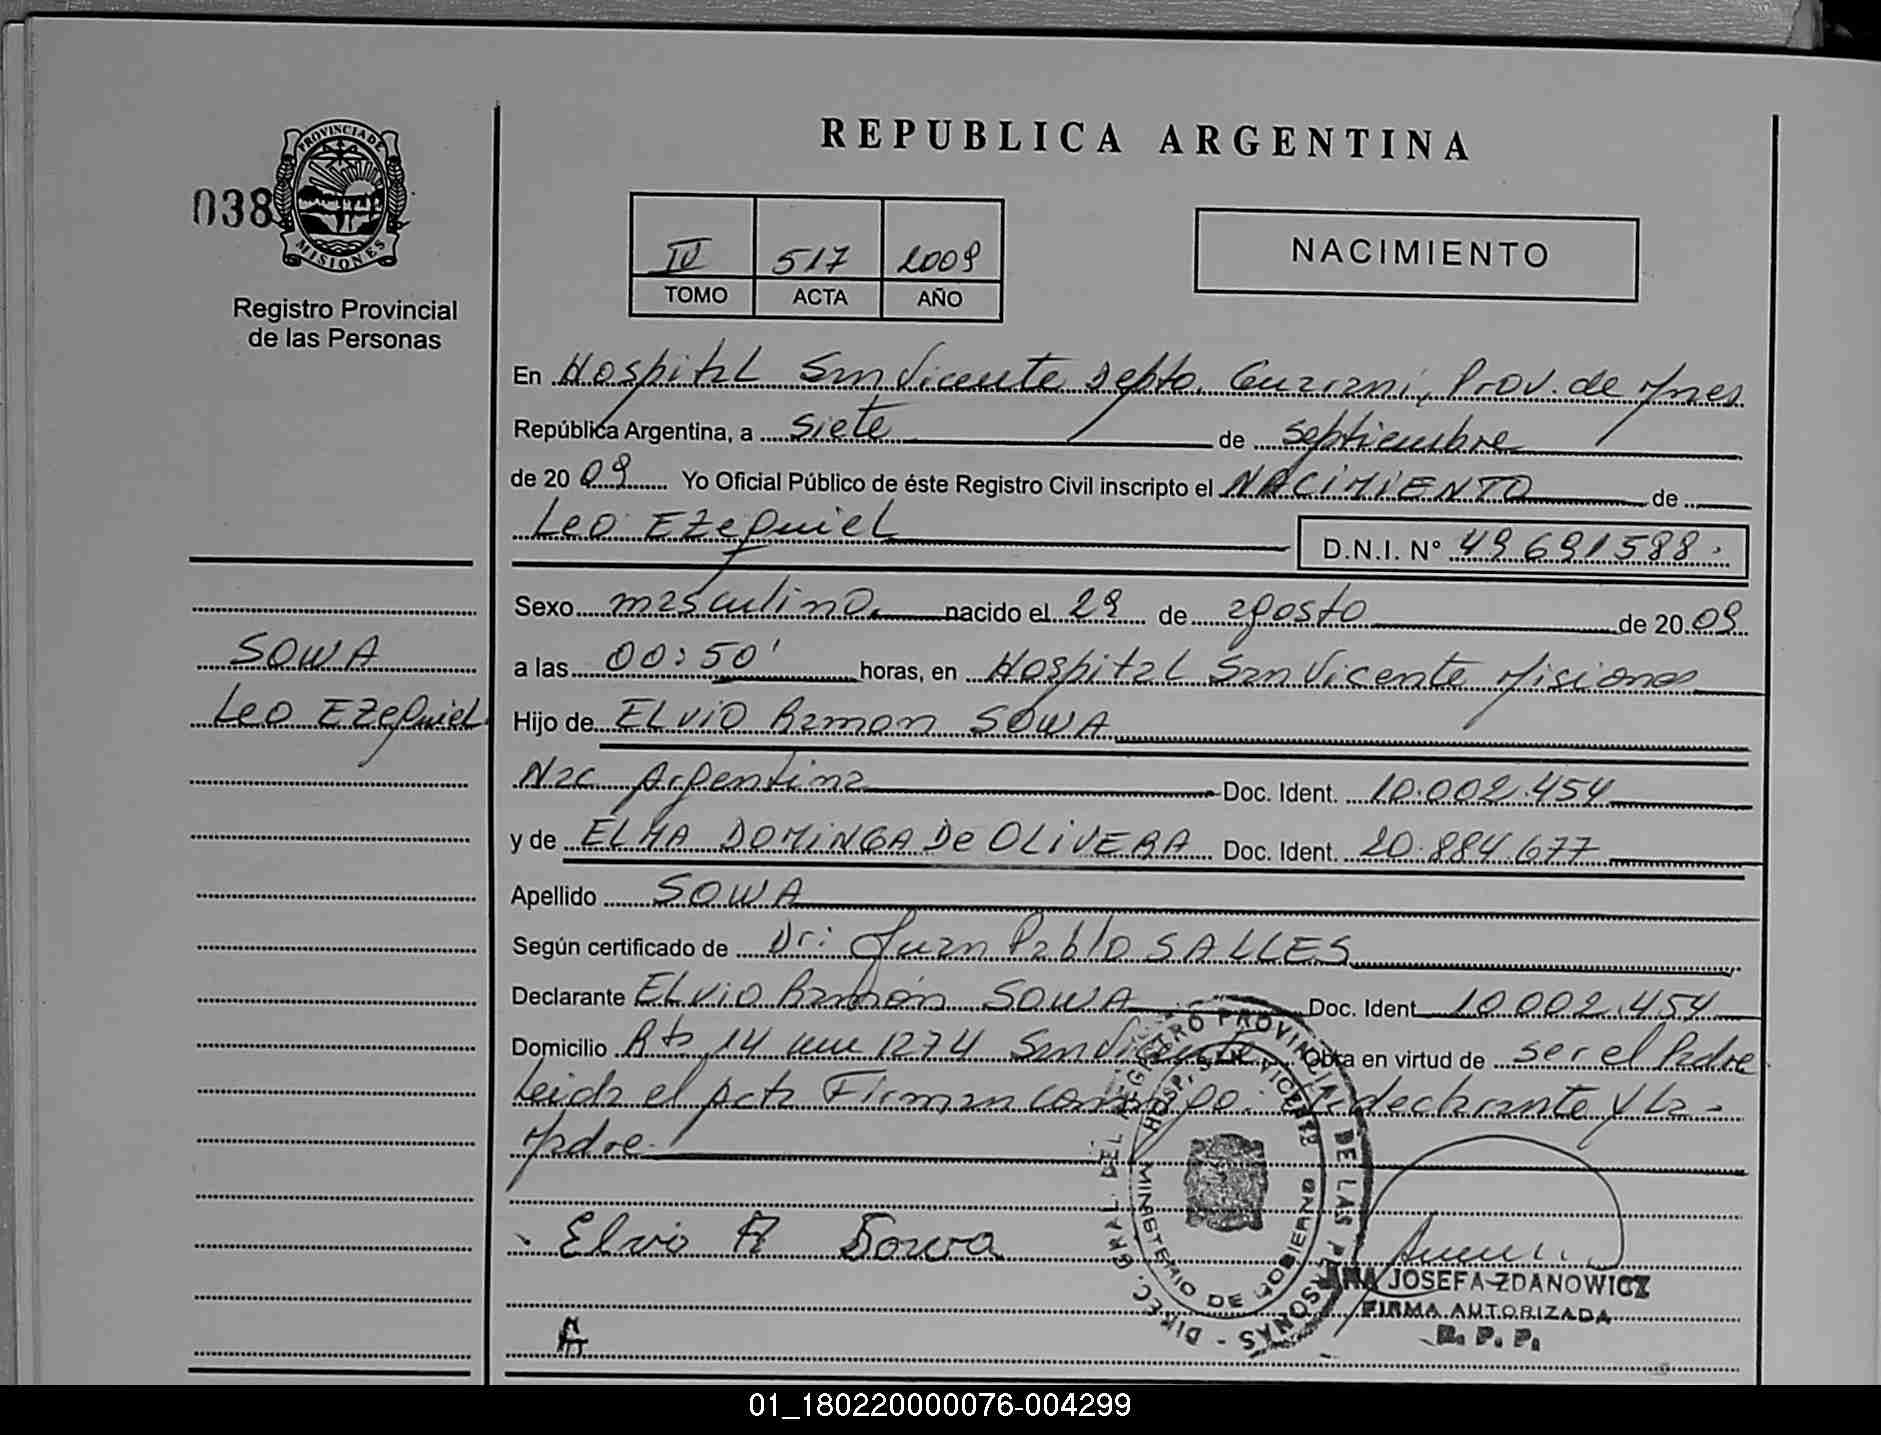 REPUBLICA ARGENTINA
PROVINCIA DE
MISIONES
038
Registro Provincial
de las Personas
IV 517 2009
TOMO ACTA AÑO
NACIMIENTO
En Hospital San Vicente Depto. Guarani, Prov. de Mnes
República Argentina, a siete de septiembre
de 2009 Yo Oficial Público de éste Registro Civil inscripto el NACIMIENTO de
Leo Ezequiel D.N.I. N° 49691588.
Sexo masculino nacido el 29 de agosto de 2009
SOWA
a las 00:50' horas, en Hospital San Vicente Misiones
Leo Ezequiel
Hijo de Elvio Ramon SOWA
Nac Argentina Doc. Ident. 10.002.454
y de ELMA DOMINGA De OLIVERA Doc. Ident. 20.884.677
Apellido SOWA
Según certificado de Dr: Juan Pablo SALLES
Declarante Elvio Ramón SOWA Doc. Ident 10.002.454
Domicilio Rta 14 km 1274 San Vicente Obra en virtud de ser el Padre
Leida el acta Firman conmigo declarante y La
Madre
DIREC. GRAL. DEL REGISTRO PROVINCIAL DE LAS PERSONAS
HOSP. S. VICENTE
MINISTERIO DE GOBIERNO
Elvio R Sowa
ANA JOSEFA ZDANOWICZ
FIRMA AUTORIZADA
R. P. P.
01_180220000076-004299